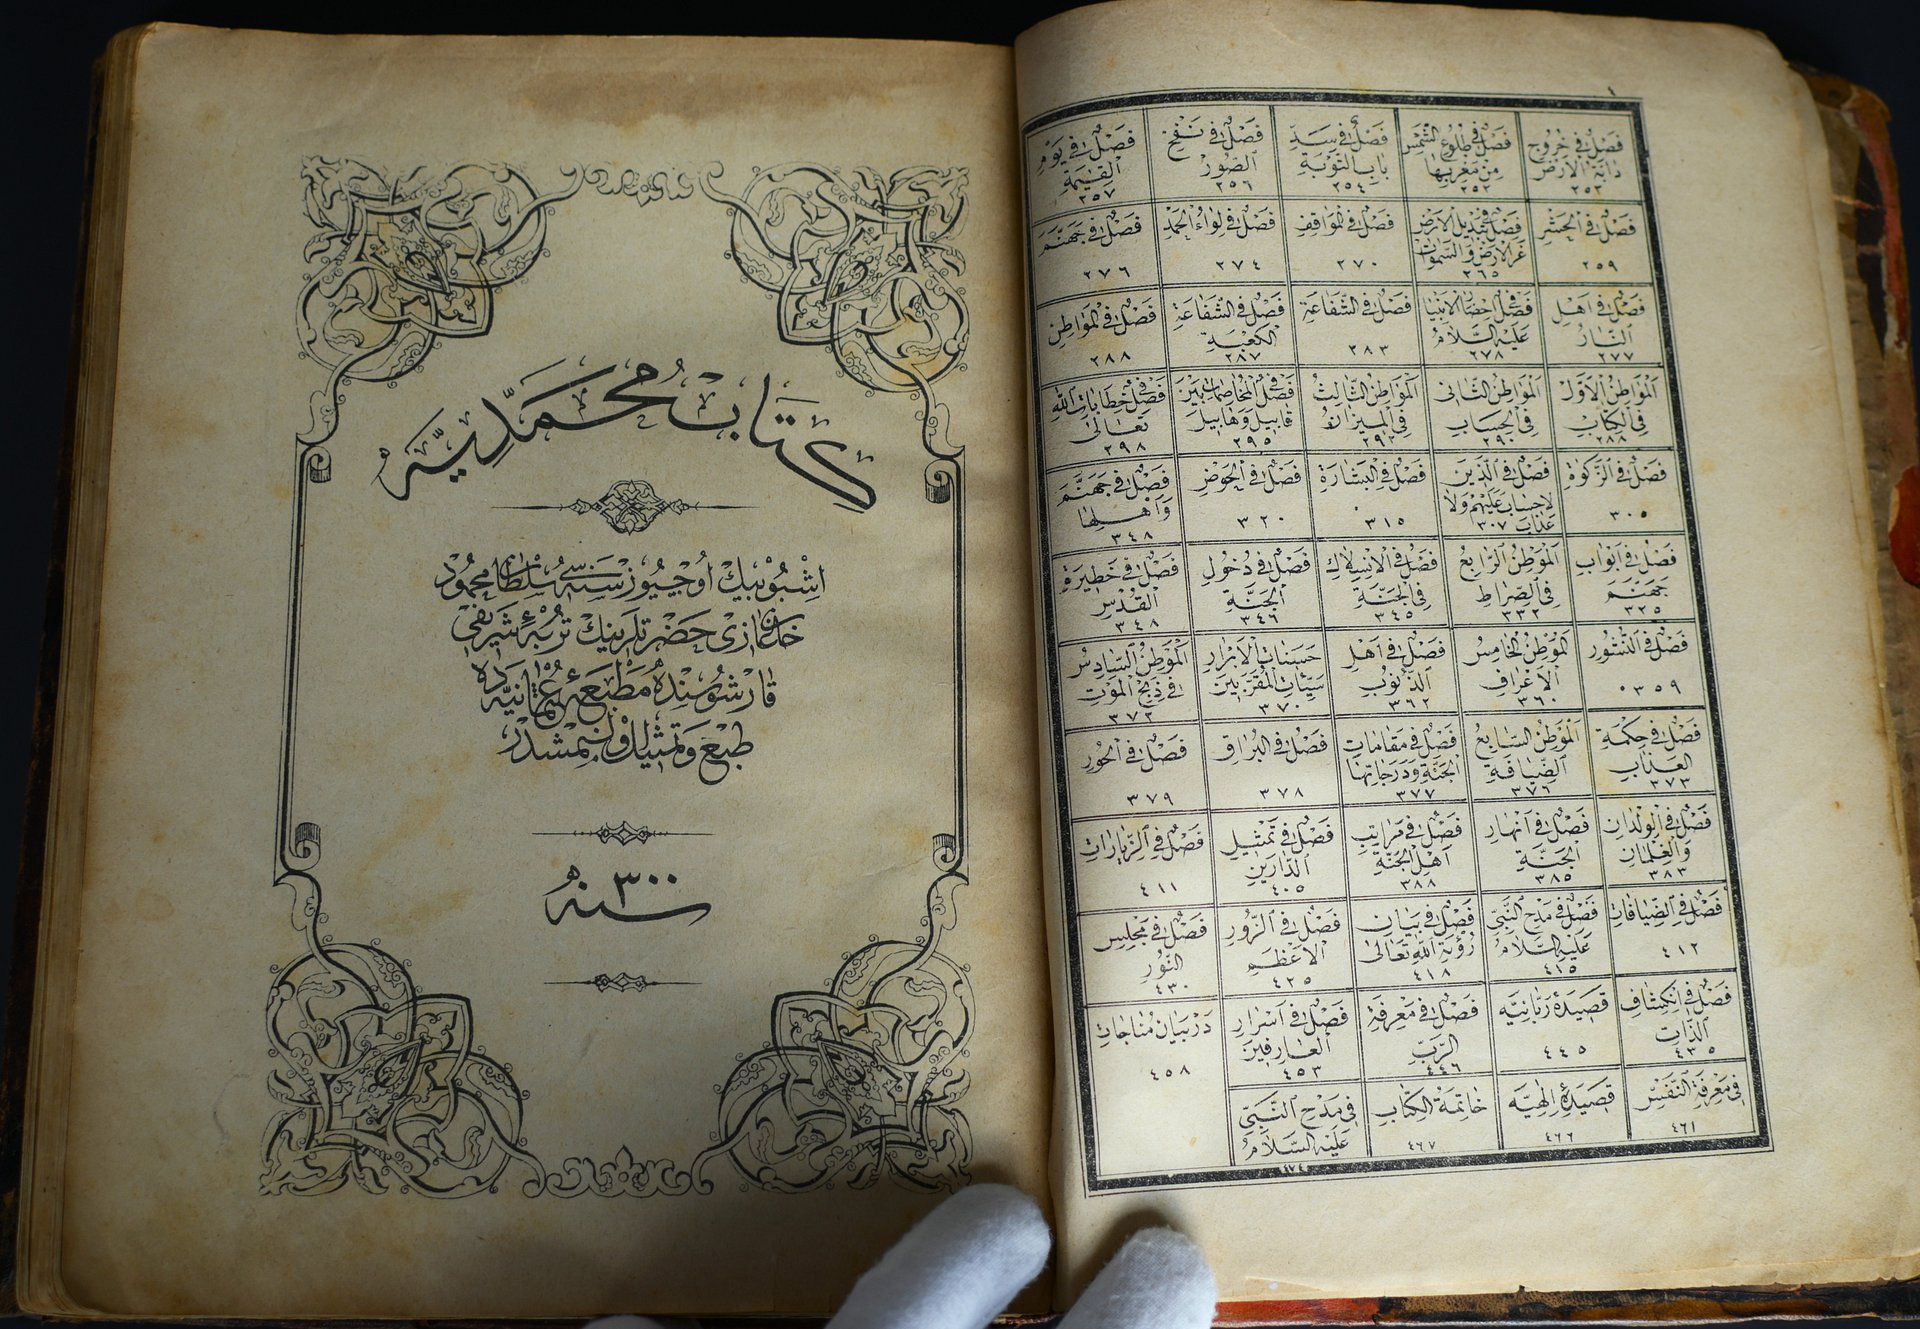 فصل في خروج
دابة الارض
٢٥٣
فصل في طلوع الشمس
من مغربها
٢٥٢
فصل في سد
باب التوبة
٢٥٤
فصل في نفخ
الصور
٢٥٦
فصل في يوم
القيمة
٢٥٧
فصل في الحشر
٢٥٩
فصل في تبديل الارض
غير الارض والسموات
٢٦٥
فصل في المواقف
٢٧٠
فصل في لواء الحمد
٢٧٤
فصل في جهنم
٢٧٦
فصل في اهل
النار
٢٧٧
فصل في
الانبيا
عليه السلام
٢٧٨
فصل في الشفاعة
٢٨٣
فصل في الشفاعة
الكعبة
٢٨٧
فصل في المواطن
٢٨٨
الموطن الاول
في الكتاب
٢٨٨
الموطن الثانى
في الحساب
٢٩٠
الموطن الثالث
في الميزان
٢٩٢
فصل المخاصمات بين
قابيل وهابيل
٢٩٥
فصل في خطابات الله
تعالى
٢٩٨
فصل في الزكوة
٣٠٥
فصل في الذين
لا حساب عليهم ولا
عذاب ٣٠٧
فصل في البشارة
٣١٥
فصل في الحوض
٣٢٠
فصل في جهنم
واهلها
٣٤٨
فصل في ابواب
جهنم
٣٢٥
الموطن الرابع
في الصراط
٣٣٢
فصل في الانسلاك
في الجنة
٣٤٥
فصل في دخول
الجنة
٣٤٦
فصل في خطيرة
القدس
٣٤٨
فصل في
٣٥٩
الموطن الخامس
الاعراف
٣٦٠
فصل في اهل
الذنوب
٣٦٢
حسنات الابرار
سيئات المقربين
٣٧٠
الموطن السادس
في ذبح الموت
٣٧٢
فصل في حكمة
العذاب
٣٧٣
الموطن السابع
الضيافة
٣٧٦
فصل في مقامات
الجنة ودرجاتها
٣٧٧
فصل في البراق
٣٧٨
فصل في الحور
٣٧٩
فصل في الولدان
والغلمان
٣٨٣
فصل في انهار
الجنة
٣٨٥
فصل في مراتب
اهل الجنة
٣٨٨
فصل في تمثيل
الدارين
٤٠٥
فصل في الزيارات
٤١١
فصل في الضيافات
٤١٢
فصل في مدح النبي
عليه السلام
٤١٥
فصل في بيان
رؤية الله تعالى
٤١٨
فصل في الزور
الاعظم
٤٢٥
فصل في مجلس
النور
٤٣٠
فصل في انكشاف
الذات
٤٣٥
قصيده ربانيه
٤٤٥
فصل في معرفة
الرب
٤٤٦
فصل في اسرار
العارفين
٤٥٣
در بيان مناجات
٤٥٨
في معرفة النفس
٤٦١
قصيدۀ الهيه
٤٦٦
خاتمة الكتاب
٤٦٧
في مدح النبي
عليه السلام
٤٧٤
كتاب محمديه
اشبو بيك اوچيوز سنه سى سلطان محمود
خان غازى حضرتلرينك تربۀ شريفى
قارشوسنده مطبعۀ عثمانيه ده
طبع وتمثيل اولنمشدر
سنه ٣٠٠